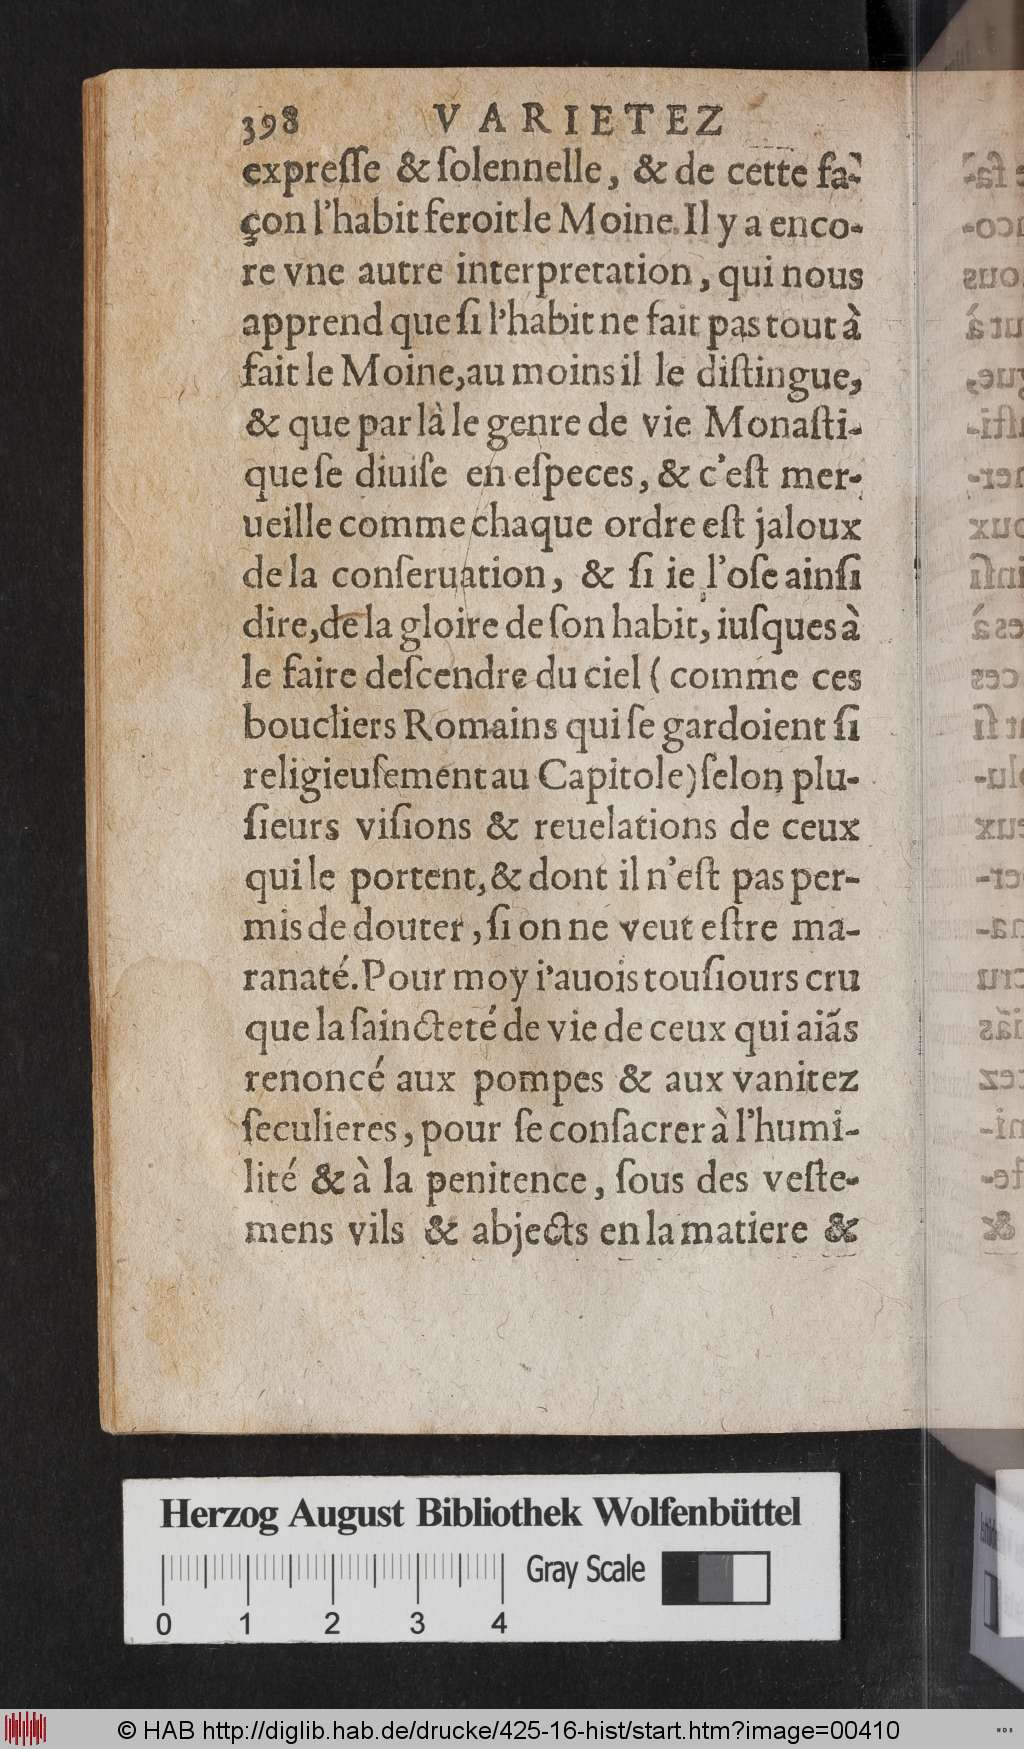 398 VARIETEZ
expreſſe & ſolennelle, & de cette fa-
çon l'habit feroit le Moine. Il y a enco-
re vne autre interpretation, qui nous
apprend que ſi l'habit ne fait pas tout à
fait le Moine, au moins il le diſtingue,
& que par là le genre de vie Monaſti-
que ſe diuiſe en eſpeces, & c'eſt mer-
ueille comme chaque ordre eſt jaloux
de la conſeruation, & ſi ie l'oſe ainſi
dire, de la gloire de ſon habit, iuſques à
le faire deſcendre du ciel ( comme ces
boucliers Romains qui ſe gardoient ſi
religieuſement au Capitole) ſelon plu-
ſieurs viſions & reuelations de ceux
qui le portent, & dont il n'eſt pas per-
mis de douter, ſi on ne veut eſtre ma-
ranaté. Pour moy i'auois touſiours cru
que la ſaincteté de vie de ceux qui aiãs
renoncé aux pompes & aux vanitez
ſeculieres, pour ſe conſacrer à l'humi-
lité & à la penitence, ſous des veſte-
mens vils & abjects en la matiere &
Herzog August Bibliothek Wolfenbüttel
Gray Scale
0 1 2 3 4
© HAB http://diglib.hab.de/drucke/425-16-hist/start.htm?image=00410